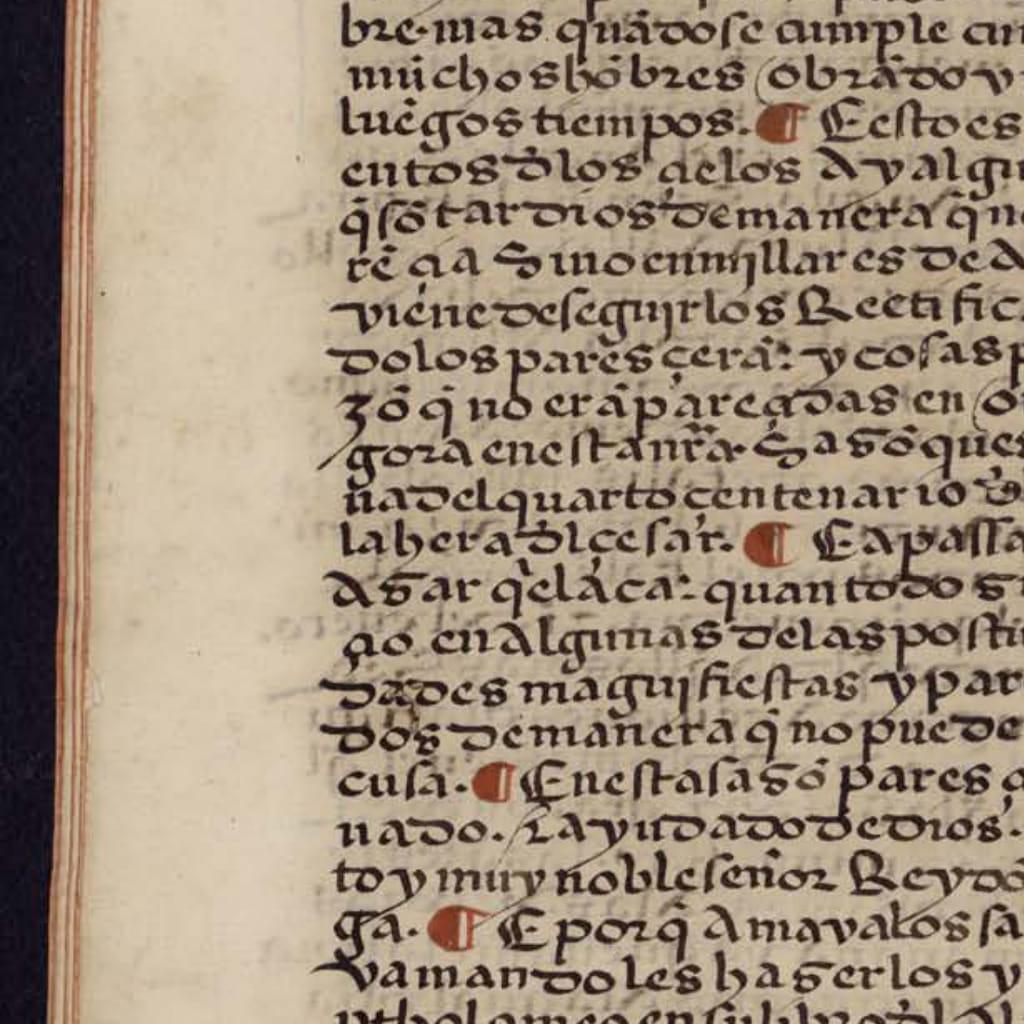 bre. mas quādose cumple en
muchos hōbres obrādo y
luēgos tiempos. ¶ E esto es
entos dłos çielos Ay algu
q̄ sō tardios de manera q̄ n
rēçia Sino en mjllares de A
viene de seguirlos Rectific
dolos paresçerā: y cosas p
zō q̄ no erā pareçidas en
gora en estanr̃a. Sazō que
na del quarto centenario
la hera dł çesar. ¶ E a passa
Azar q̄l aca: quanto do z
ço en algunas de las posti
dades magnifiestas y par
dos de manera q̄ no puede
cusa. ¶ En esta sazō pares
nado. z ayudado de dios.
to y muy noble señor Rey dō
ga. ¶ E porq̄ Amava los sa
va mandoles hazer los y